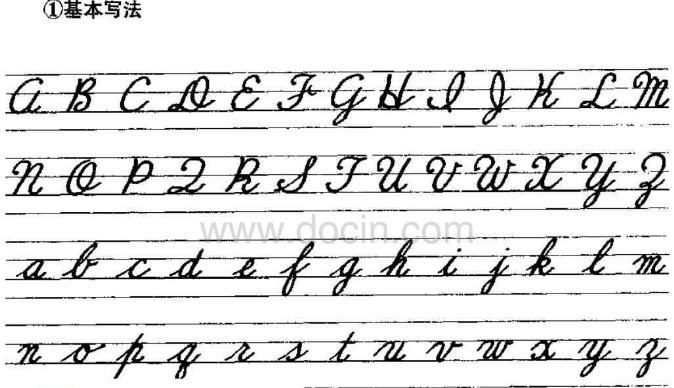 ①基本写法
A B C D E F G H I J K L M
N O P Q R S T U V W X Y Z
www.docin.com
a b c d e f g h i j k l m
n o p q r s t u v w x y z